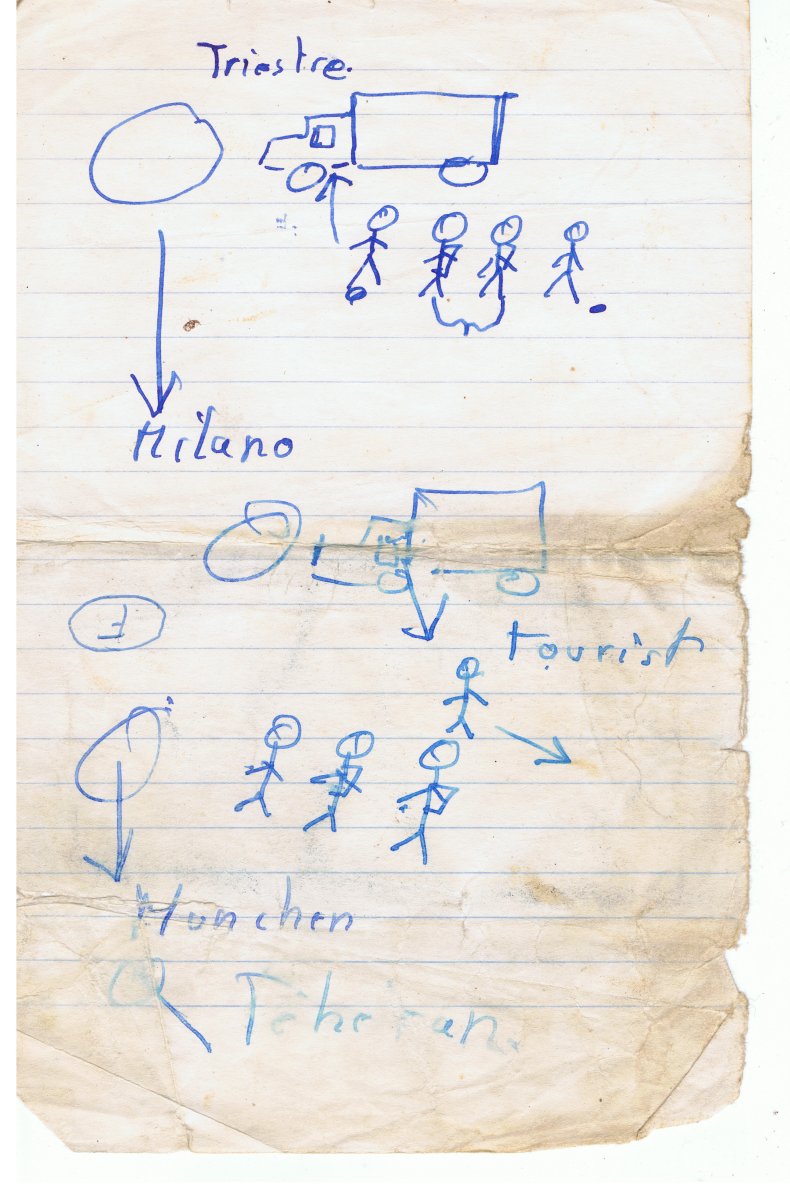 Triestre.
Milano
F
tourist
Munchen
Teheran.